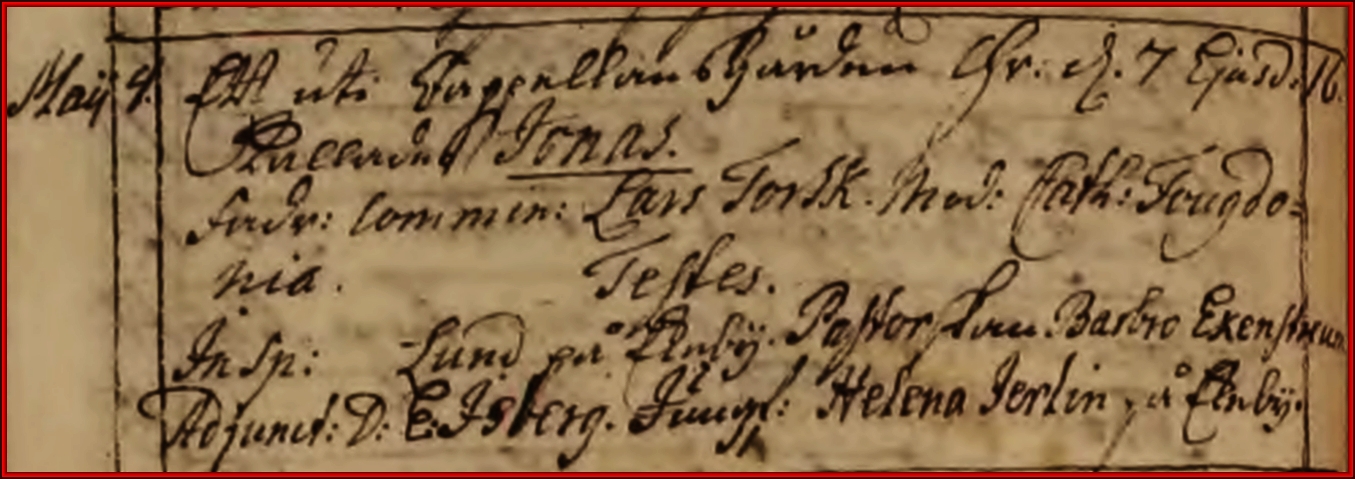 Maij 4. Ett uti Cappellans Gården Chr: d. 7 Ejusd: 16.
Kallades Jonas.
Fadr: Commin: Lars Torsk. Mod: Cath: Fougdo=
nia. Testes.
Insp: Lund på Elnbÿ. Pastorskan Barbro Exenstrum
Adjunct: D: E. Isberg. Jungf: Helena Jerlin, å Elnbÿ.